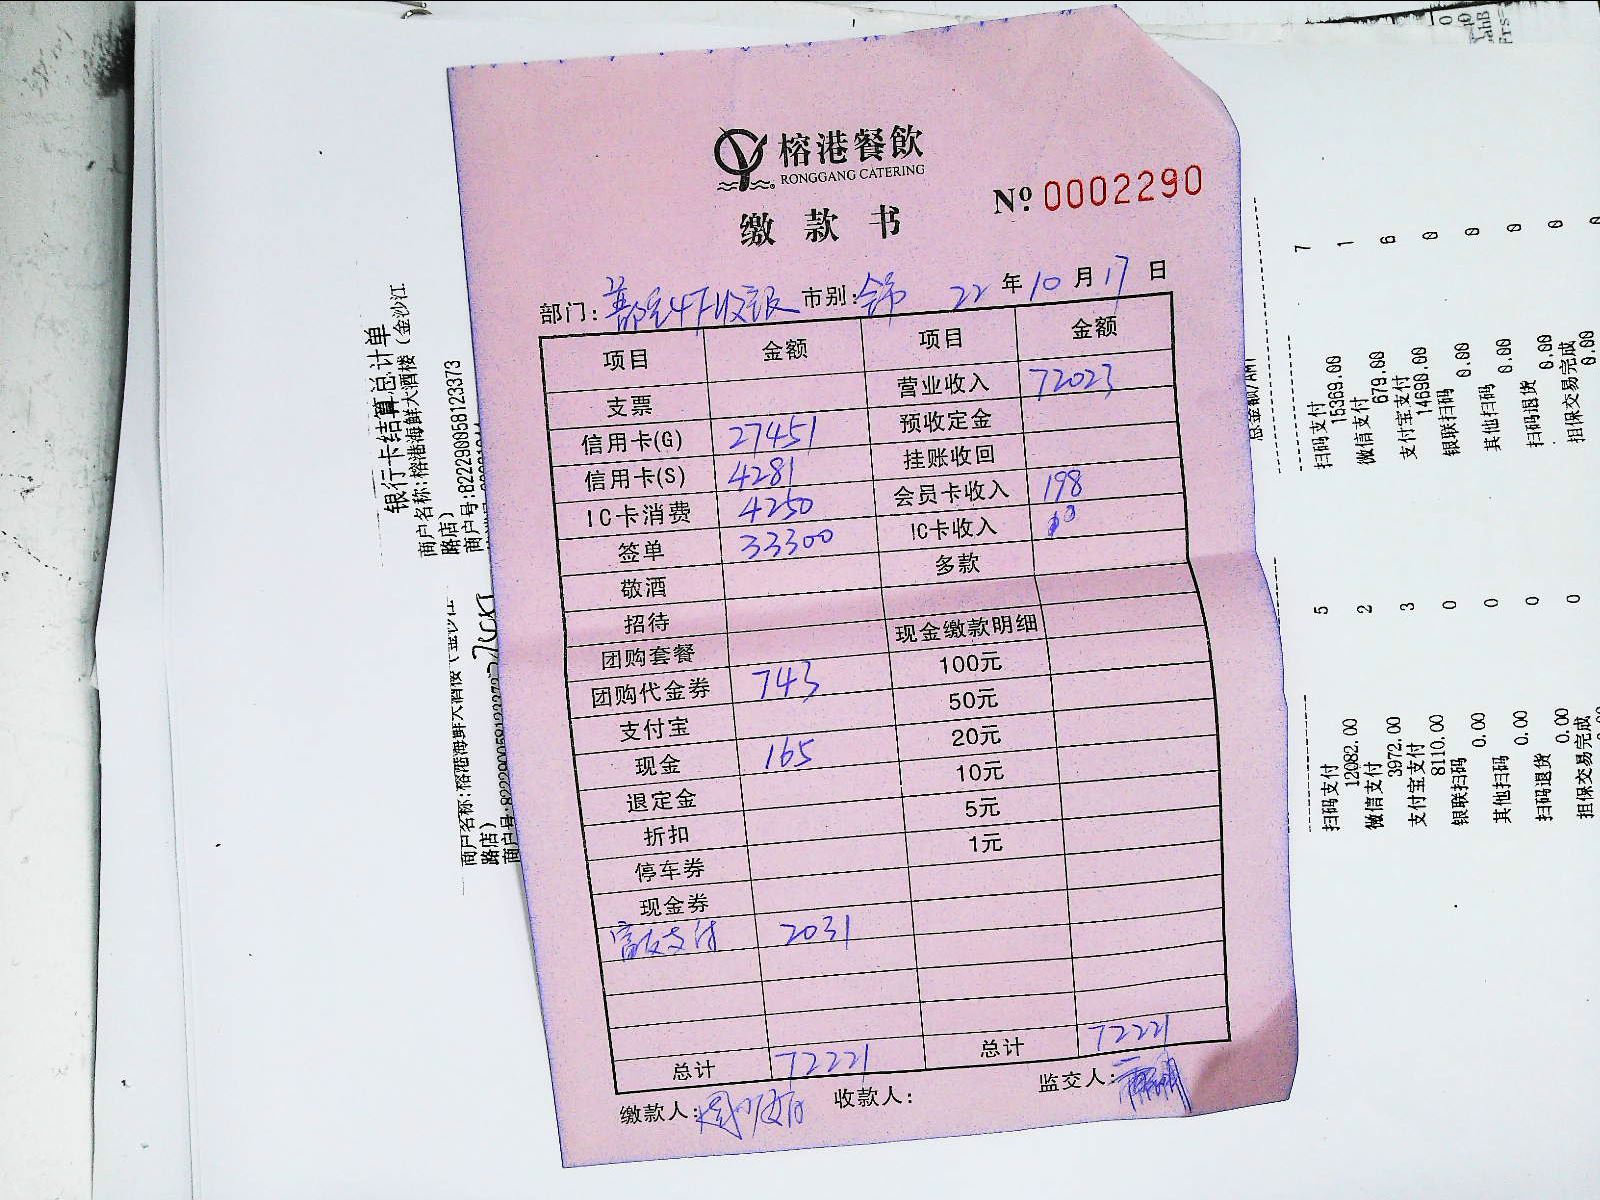 榕港餐飲
RONGGANG CATERING
缴款书
№ 0002290
部门: 4F收银 市别: 22 年 10 月 17 日
项目 金额 项目 金额
营业收入 72023
支票 预收定金
信用卡(G) 27451 挂账收回
信用卡(S) 4281 会员卡收入 198
IC卡消费 4250 IC卡收入
签单 33300 多款
敬酒
招待 现金缴款明细
团购套餐 100元
团购代金券 743 50元
支付宝 20元
现金 165 10元
退定金 5元
折扣 1元
停车券
现金券
支付 2031
总计 72221 总计 72221
缴款人: 收款人: 监交人:
银行卡结算总计单
商户名称:榕港海鲜大酒楼(金沙江
路店)
商户号:822290058123373
商户名称:榕港海鲜大酒楼(金沙江
路店)
商户号:822290058123373
7
1
6
0
0
0
0
0
扫码支付
15369.00
微信支付
679.00
支付宝支付
14690.00
银联扫码
0.00
其他扫码
0.00
扫码退货
0.00
担保交易完成
0.00
5
2
3
0
0
0
0
扫码支付
12082.00
微信支付
3972.00
支付宝支付
8110.00
银联扫码
0.00
其他扫码
0.00
扫码退货
0.00
担保交易完成